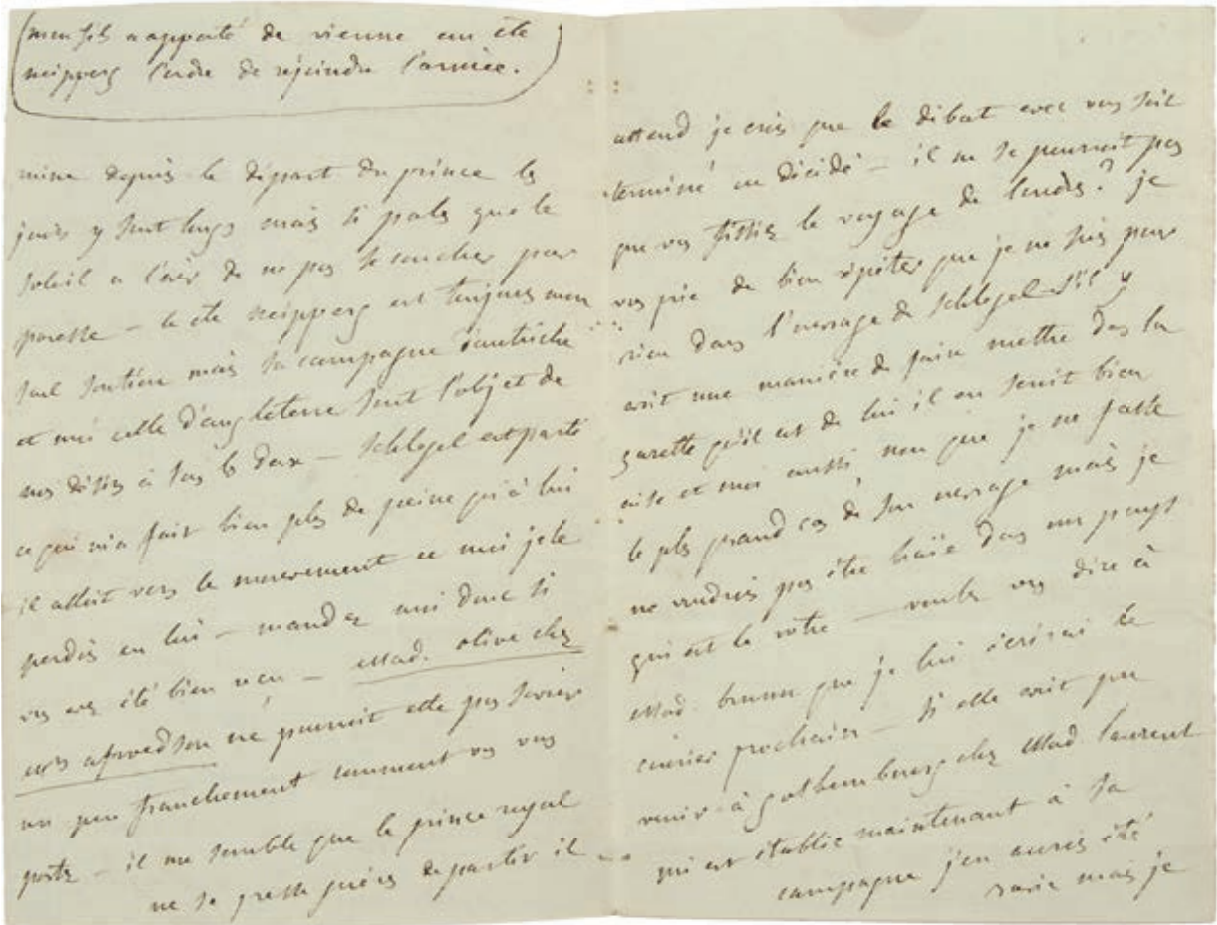 (mon fils a apporté de vienne au cte
neipperg l'ordre de rejoindre l'armée.)
mine depuis le départ du prince les
jours y sont longs mais si pales que le
soleil a l'air de ne pas se coucher par
paresse – le cte neipperg est toujours mon
seul soutien mais sa campagne d'autriche
et moi celle d'angleterre sont l'objet de
nos désirs à tous les deux – schlegel est parti
ce qui m'a fait bien plus de peine qu'à lui
il alloit vers le mouvement et moi je le
perdois en lui – mandez moi donc si
vs avez été bien reçu – Mad. olive chez
mrs afwedson ne pourroit elle pas savoir
un peu franchement comment vs vous
portez – il me semble que le prince royal
ne se presse guères de partir il
attend je crois que le débat avec vous soit
terminé ou décidé – il ne se pourroit pas
que vs fissiez le voyage de londres? je
vous prie de bien répéter que je ne suis pour
rien dans l'ouvrage de schlegel s'il y
avoit une manière de faire mettre dans la
gazette qu'il est de lui il en seroit bien
aise et moi aussi non que je ne fasse
le plus grand cas de son ouvrage mais je
ne voudrois pas être haïe dans un pays
qui est le votre – voulez vous dire à
Mad. brunn que je lui écrirai le
courier prochain – si elle avoit pu
venir à gothembourg chez Mad. laurent
qui est établie maintenant à sa
campagne j'en aurois été
ravie mais je